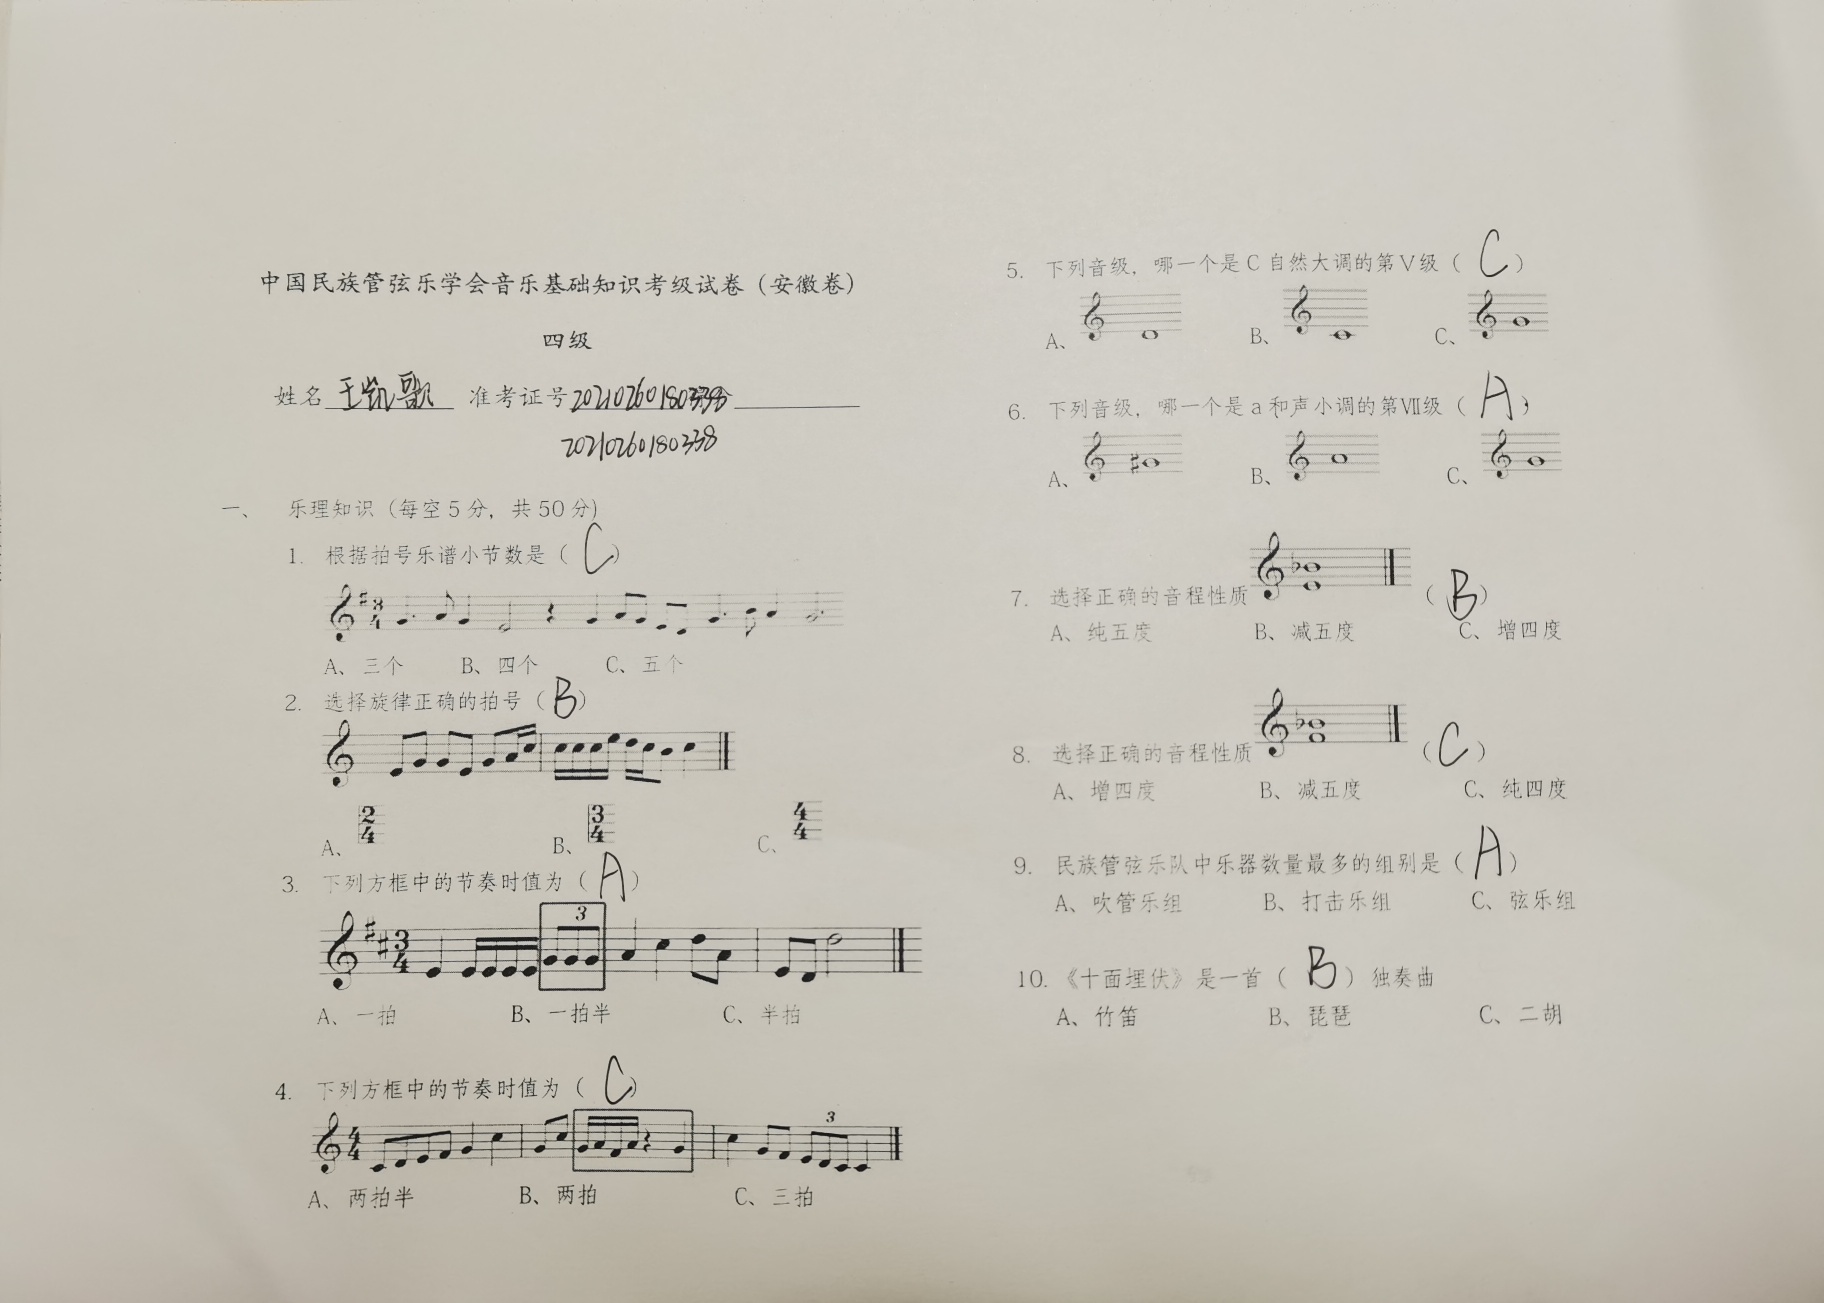 中国民族管弦乐学会音乐基础知识考级试卷（安徽卷）
四级
姓名 王凯歌 准考证号
20210260180338
一、 乐理知识（每空 5 分，共 50 分）
1. 根据拍号乐谱小节数是（ C ）
3
4
A、三个 B、四个 C、五个
2. 选择旋律正确的拍号（ B ）
A、 2/4 B、 3/4 C、 4/4
3. 下列方框中的节奏时值为（ A ）
3
3
4
A、一拍 B、一拍半 C、半拍
4. 下列方框中的节奏时值为（ C ）
3
4
4
A、两拍半 B、两拍 C、三拍
5. 下列音级，哪一个是 C 自然大调的第Ⅴ级（ C ）
A、 B、 C、
6. 下列音级，哪一个是 a 和声小调的第Ⅶ级（ A ）
A、 B、 C、
7. 选择正确的音程性质 （ B ）
A、纯五度 B、减五度 C、增四度
8. 选择正确的音程性质 （ C ）
A、增四度 B、减五度 C、纯四度
9. 民族管弦乐队中乐器数量最多的组别是（ A ）
A、吹管乐组 B、打击乐组 C、弦乐组
10.《十面埋伏》是一首（ B ）独奏曲
A、竹笛 B、琵琶 C、二胡